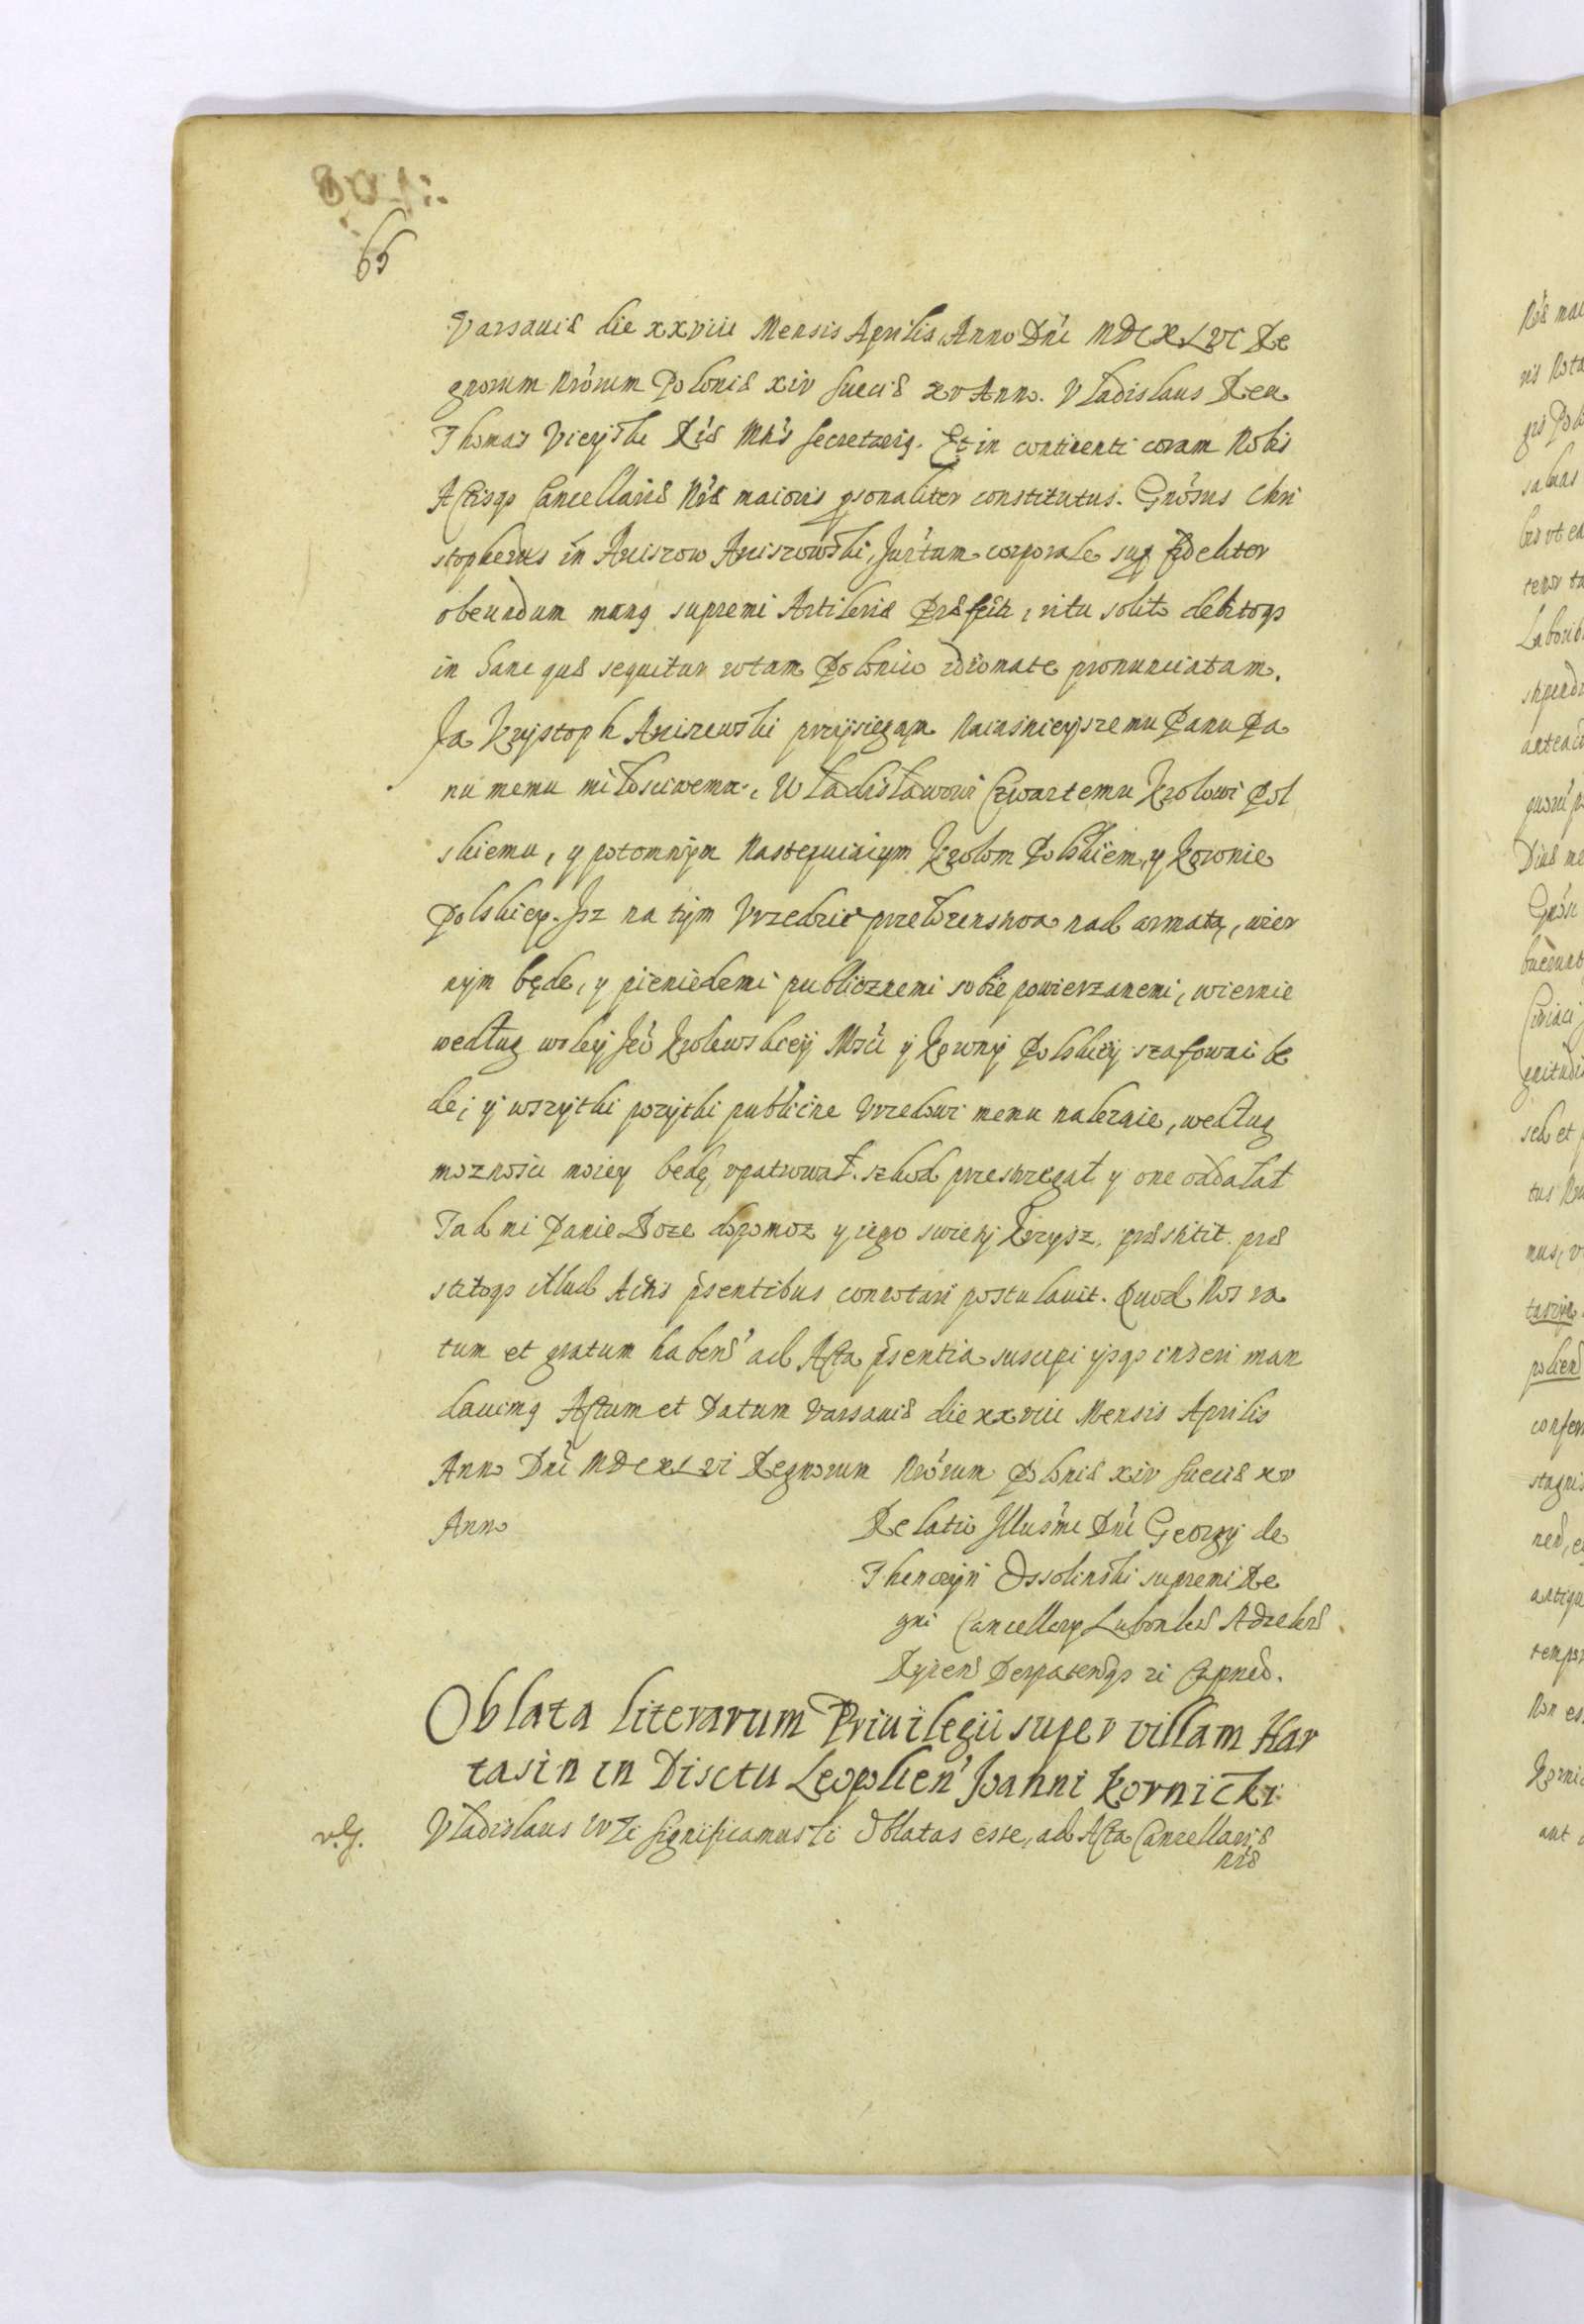 66
Varsauiæ die xxviii Mensis Aprilis Anno Dni MDCXLVI Re
gnorum nrorum Poloniæ xiv Sueciæ xv Anno. Vladislaus Rex
Thomas Vieyski Rs Mtis Secretarius. Et in continenti coram Nobis
Actisqs Cancellariæ Nræ maioris psonaliter constitutus. Gnosus Chri
stopherus in Arciszow Arciszowski, Jurtum corporale sup fideliter
obeundum munq supremi Artileriæ Præfecti, ritu solito debitoqs
in hanc quæ sequitur rotam Polonico idiomate pronunciatam.
Ja Krzystoph Arciszewski przysiegąm Naiaśnieyszemu Panu Pa
nu memu miłosciwemu, Władisławowi Czwartemu Krolowi Pol
skiemu, y potomnym Nastepuiaiym Krolom Polskiem, y Koronie
Polskiey. Jsz na tym Vrzedzie przełozenstwa nad armatą, wier
nym będe, y pieniedzmi publicznemi sobie powierzanemi, wiernie
według woley Jeo Krolewskiey Msci y Korony Polskiey szafowac be
de, y wszytki pozytki publicne Vrzedowi memu nalezaie, według
moznosci moiey będę vpatrował. szkod przestrzegał y one oddalał
Tak mi Panie Boze dopomoz y iego swiety Krzysz. præstitit. præ
stitoqs illud Actis psentibus connotari postulauit. Quod Nos ra
tum et gratum habens ad Acta psentia suscipi ysqs inseri man
dauimq Actum et Datum Varsauiæ die xxviii Mensis Aprilis
Anno Dni MDCXLVI Regnorum Nrorum Poloniæ xiv Sueciæ xv
Anno
Relatio Jllusmi Dni Georgy de
Thenczyn Ossolinski supremi Re
gni Cancellary Lubonles Adzeles
Ryzens Derpatensqs zi Capnei.
Oblata literarum Priuilegii super villam Har
tasin in Disctu Leoplien Joanni Kornicki
Vladislaus IV Zi Significamus Zi Oblatas esse, ad Acta Cancellariæ
nræ